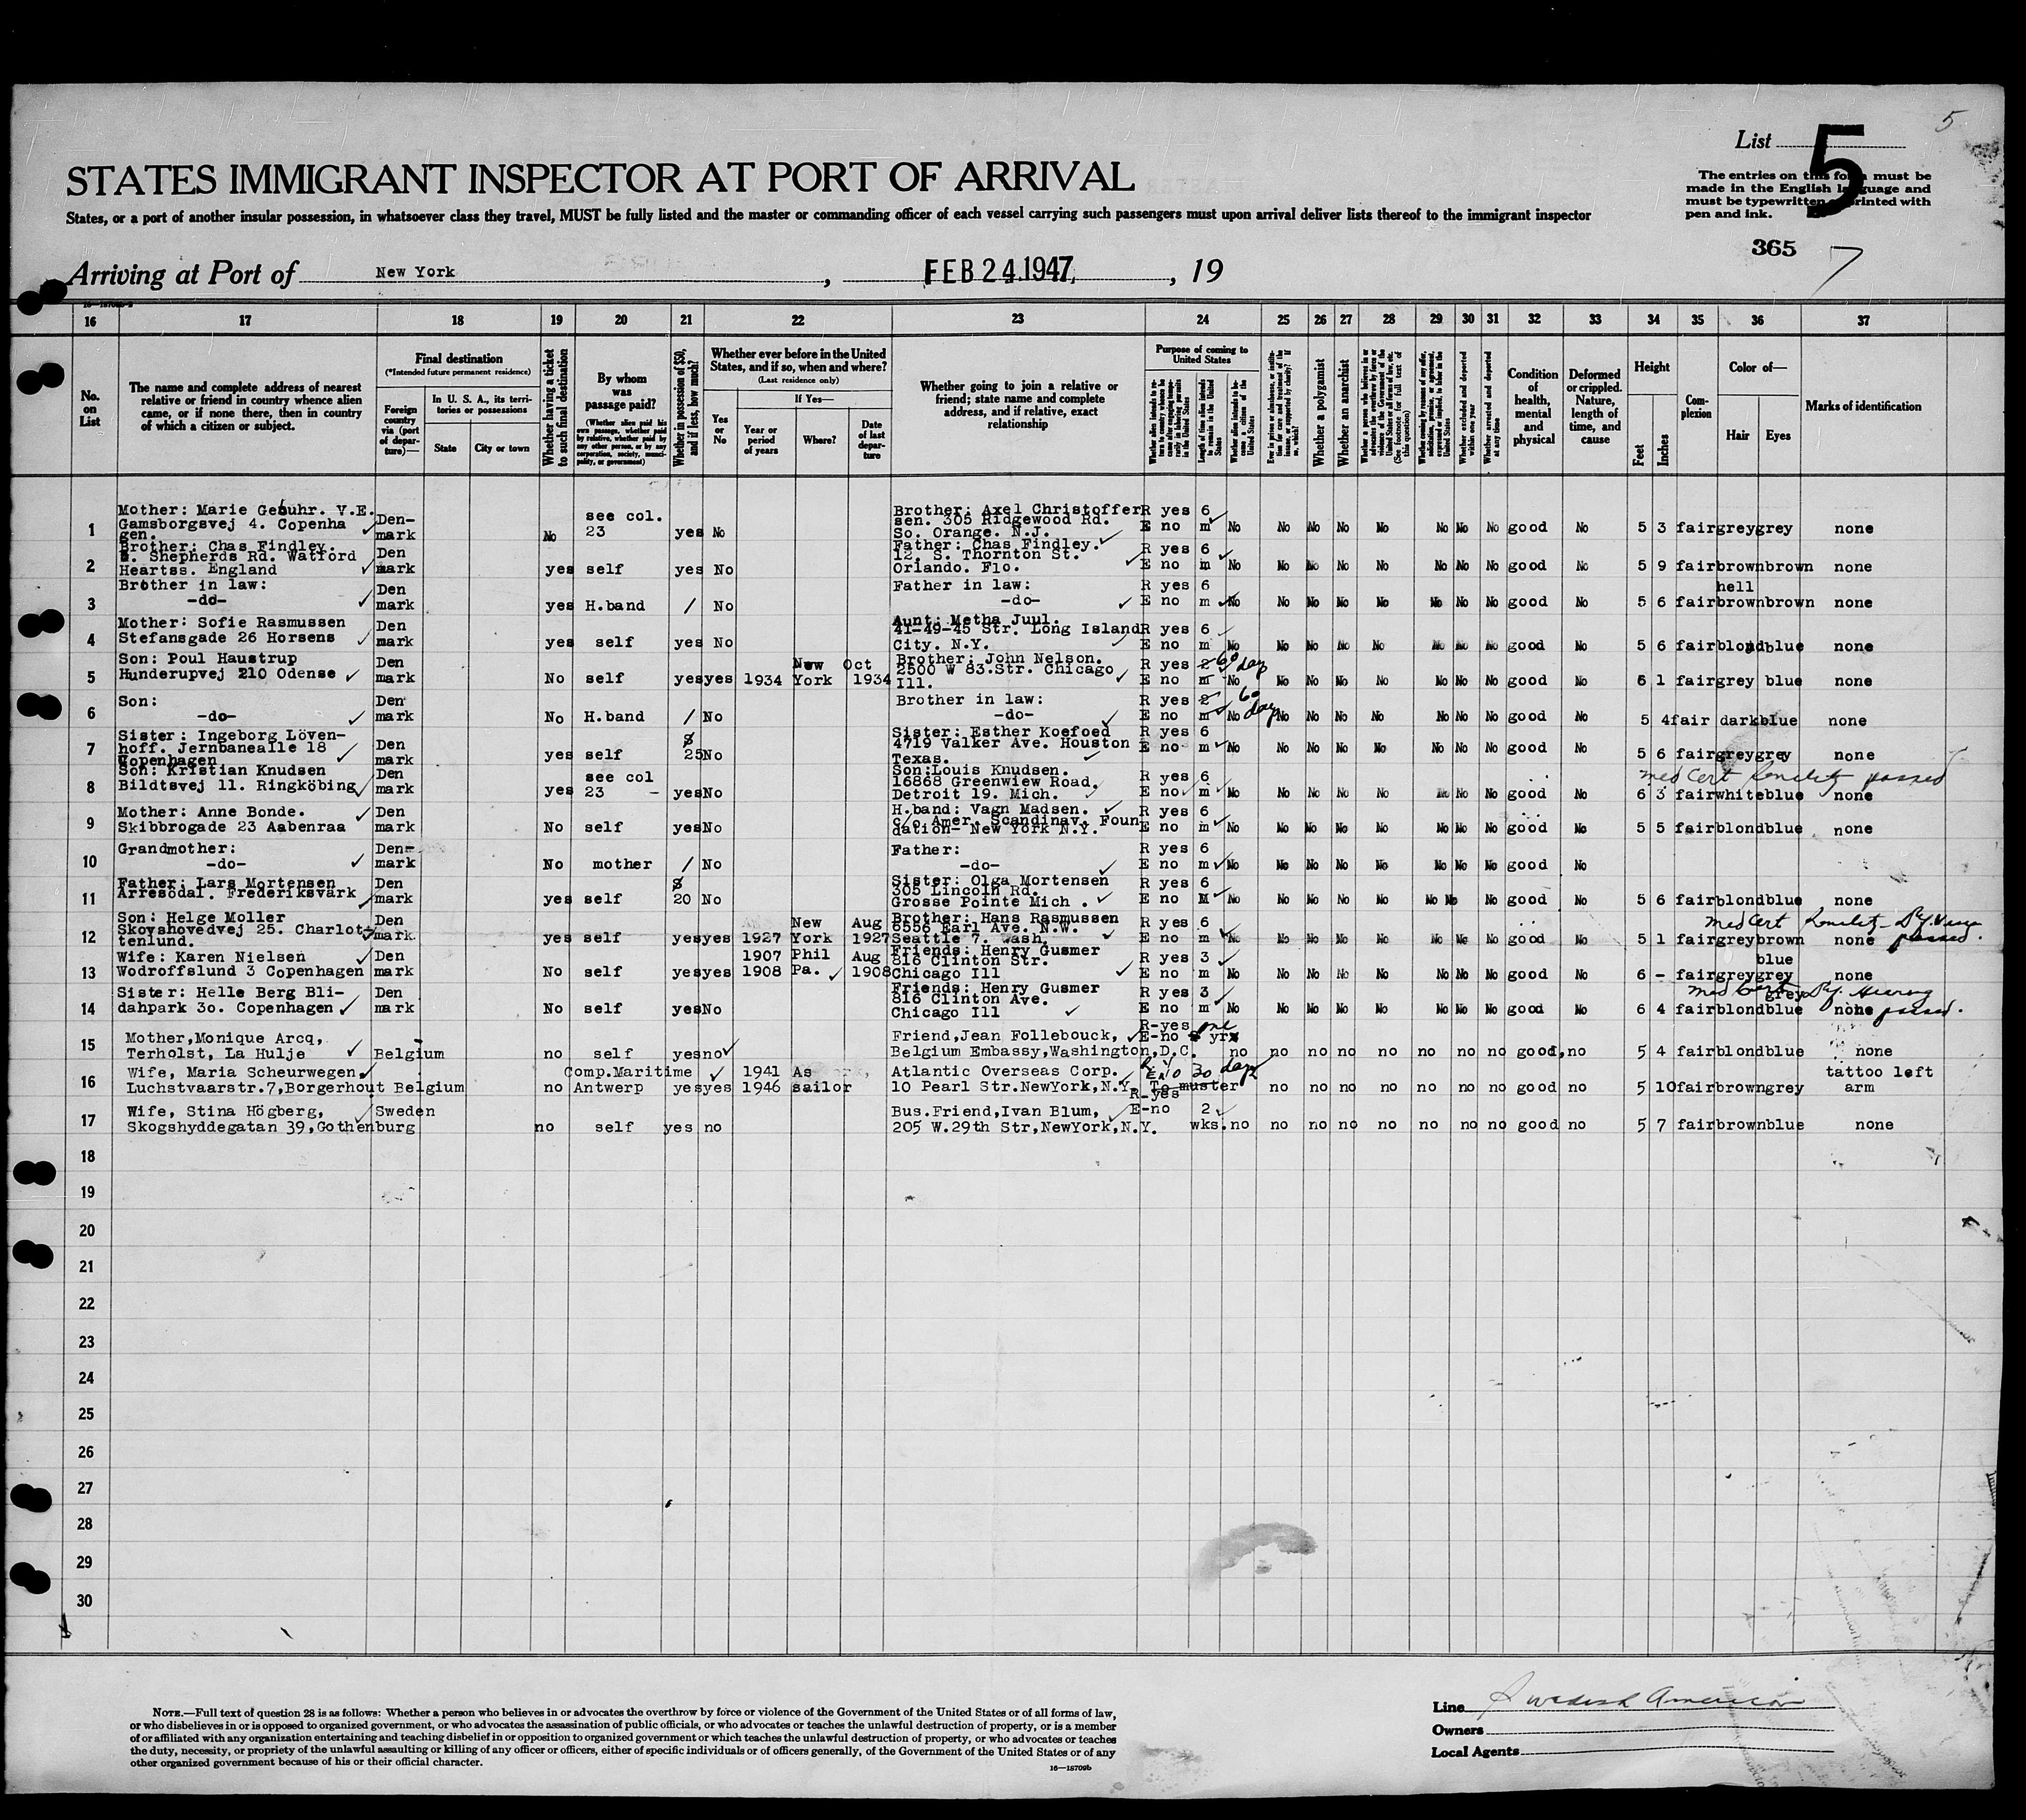 5
List 5
STATES IMMIGRANT INSPECTOR AT PORT OF ARRIVAL
The entries on this form must be
made in the English language and
must be typewritten or printed with
pen and ink.
States, or a port of another insular possession, in whatsoever class they travel, MUST be fully listed and the master or commanding officer of each vessel carrying such passengers must upon arrival deliver lists thereof to the immigrant inspector
365
7
Arriving at Port of New York, FEB 24 1947, 19
16 17 18 19 20 21 22 23 24 25 26 27 28 29 30 31 32 33 34 35 36 37
No. on List
The name and complete address of nearest relative or friend in country whence alien came, or if none there, then in country of which a citizen or subject.
Final destination
(*Intended future permanent residence)
Foreign country via (port of departure)—
In U. S. A., its territories or possessions
State
City or town
Whether having a ticket to such final destination
By whom was passage paid?
(Whether alien paid his own passage, whether paid by relative, whether paid by any other person, or by any corporation, society, municipality, or government)
Whether in possession of $50, and if less, how much?
Whether ever before in the United States, and if so, when and where?
(Last residence only)
Yes or No
If Yes—
Year or period of years
Where?
Date of last departure
Whether going to join a relative or friend; state name and complete address, and if relative, exact relationship
Purpose of coming to United States
Length of time alien intends to remain in the United States
Whether alien intends to become a citizen of the United States
Whether a polygamist
Whether an anarchist
(See footnote for full text of this question)
Whether excluded and deported within one year
Whether arrested and deported at any time
Condition of health, mental and physical
Deformed or crippled. Nature, length of time, and cause
Height
Feet
Inches
Complexion
Color of—
Hair
Eyes
Marks of identification
1 Mother: Marie Gebuhr. V.E. Gamsborgsvej 4. Copenhagen. Denmark No see col. 23 yes No Brother: Axel Christoffersen. 305 Ridgewood Rd. So. Orange. N.J. R yes E no 6 m No No No No No No No No good No 5 3 fair grey grey none
2 Brother: Chas Findley. Shepherds Rd. Watford Heartss. England Den mark yes self yes No Father: Chas Findley. 12. S. Thornton St. Orlando. Flo. R yes E no 6 m No No No No No No No No good No 5 9 fair brown brown none
3 Brother in law: -do- Den mark yes H.band / No Father in law: -do- R yes E no 6 m No No No No No No No No good No 5 6 fair hell brown brown none
4 Mother: Sofie Rasmussen Stefansgade 26 Horsens Den mark yes self yes No Aunt: Metha Juul. 41-49-45 Str. Long Island City. N.Y. R yes E no 6 m No No No No No No No No good No 5 6 fair blond blue none
5 Son: Poul Haustrup Hunderupvej 210 Odense Den mark No self yes yes 1934 New York Oct 1934 Brother: John Nelson. 2500 W 83.Str. Chicago Ill. R yes E no 2 m 60 day No No No No No No No No good No 6 1 fair grey blue none
6 Son: -do- Den mark No H.band / No Brother in law: -do- R yes E no 2 m 60 day No No No No No No No No good No 5 4 fair dark blue none
7 Sister: Ingeborg Lövenhoff. Jernbanealle 18 Copenhagen Den mark yes self $ 25 No Sister: Esther Koefoed 4719 Valker Ave. Houston Texas. R yes E no 6 m No No No No No No No No good No 5 6 fair grey grey none
8 Son: Kristian Knudsen Bildtsvej 11. Ringköbing Den mark yes see col 23 - yes No Son:Louis Knudsen. 16868 Greenwiew Road. Detroit 19. Mich. R yes E no 6 m No No No No No No No No good No 6 3 fair white blue none
med Cert passed
9 Mother: Anne Bonde. Skibbrogade 23 Aabenraa Den mark No self yes No H.band: Vagn Madsen. c/o Amer. Scandinav. Foundation- New York N.Y. R yes E no 6 m No No No No No No No No good No 5 5 fair blond blue none
10 Grandmother: -do- Den= mark No mother / No Father: -do- R yes E no 6 m No No No No No No No No good No
11 Father: Lars Mortensen Arresödal. Frederiksvärk Den mark yes self $ 20 No Sister: Olga Mortensen 305 Lincoln Rd. Grosse Pointe Mich . R yes E no 6 M No No No No No No No No good No 5 6 fair blond blue none
12 Son: Helge Moller Skovshovedvej 25. Charlottenlund. Den mark. yes self yes yes 1927 New York Aug 1927 Brother: Hans Rasmussen 6556 Earl Ave. N.W. Seattle 7. Wash. R yes E no 6 m No No No No No No No No good No 5 1 fair grey brown none
med Cert passed.
13 Wife: Karen Nielsen Wodroffslund 3 Copenhagen Den mark No self yes yes 1907 1908 Phil Pa. Aug 1908 Friends: Henry Gusmer 816 Clinton Str. Chicago Ill R yes E no 3 m No No No No No No No No good No 6 - fair grey blue grey none
14 Sister: Helle Berg Blidahpark 3o. Copenhagen Den mark No self yes No Friends: Henry Gusmer 816 Clinton Ave. Chicago Ill R yes E no 3 m No No No No No No No No good No 6 4 fair blond grey blue none
med Cert passed.
15 Mother,Monique Arcq, Terholst, La Hulje Belgium no self yes no Friend,Jean Follebouck, Belgium Embassy,Washington,D.C. R-yes E-no one yrx no no no no no no no no good, no 5 4 fair blond blue none
16 Wife, Maria Scheurwegen, Luchstvaarstr.7,Borgerhout Belgium no Comp.Maritime Antwerp yes yes 1941 1946 As sailor Atlantic Overseas Corp. 10 Pearl Str.NewYork,N.Y. To muster 30 days no no no no no no no good no 5 10 fair brown grey tattoo left arm
17 Wife, Stina Högberg, Skogshyddegatan 39,Gothenburg Sweden no self yes no Bus.Friend,Ivan Blum, 205 W.29th Str,NewYork,N.Y. R-yes E-no 2 wks. no no no no no no no no good no 5 7 fair brown blue none
18
19
20
21
22
23
24
25
26
27
28
29
30
NOTE.—Full text of question 28 is as follows: Whether a person who believes in or advocates the overthrow by force or violence of the Government of the United States or of all forms of law,
or who disbelieves in or is opposed to organized government, or who advocates the assassination of public officials, or who advocates or teaches the unlawful destruction of property, or is a member
of or affiliated with any organization entertaining and teaching disbelief in or opposition to organized government or which teaches the unlawful destruction of property, or who advocates or teaches
the duty, necessity, or propriety of the unlawful assaulting or killing of any officer or officers, either of specific individuals or of officers generally, of the Government of the United States or of any
other organized government because of his or their official character.
16—18709b
Line Swedish American
Owners
Local Agents